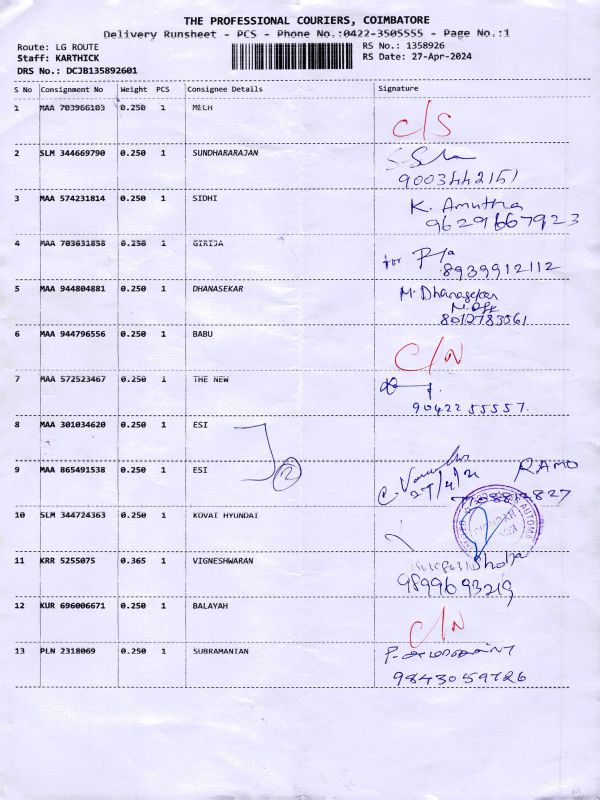 THE PROFESSIONAL COURIERS, COIMBATORE
Delivery Runsheet - PCS - Phone No.:0422-3505555 - Page No.:1
Route: LG ROUTE
Staff: KARTHICK
DRS No.: DCJB135892601
RS No.: 1358926
RS Date: 27-Apr-2024
S No Consignment No Weight PCS Consignee Details Signature
1 MAA 703966103 0.250 1 MECH C/S
2 SLM 344669790 0.250 1 SUNDHARARAJAN
9003442151
3 MAA 574231814 0.250 1 SIDHI K. Amutha
9629667923
4 MAA 703631858 0.250 1 GIRIJA for
8939912112
5 MAA 944804881 0.250 1 DHANASEKAR M. Dhanasekar
8012783061
6 MAA 944796556 0.250 1 BABU C/N
7 MAA 572523467 0.250 1 THE NEW
9042255557.
8 MAA 301034620 0.250 1 ESI
9 MAA 865491538 0.250 1 ESI 2 27/4/24
10 SLM 344724363 0.250 1 KOVAI HYUNDAI
11 KRR 5255075 0.365 1 VIGNESHWARAN
9899693219
12 KUR 696006671 0.250 1 BALAYAH C/N
13 PLN 2318069 0.250 1 SUBRAMANIAN
9843059726